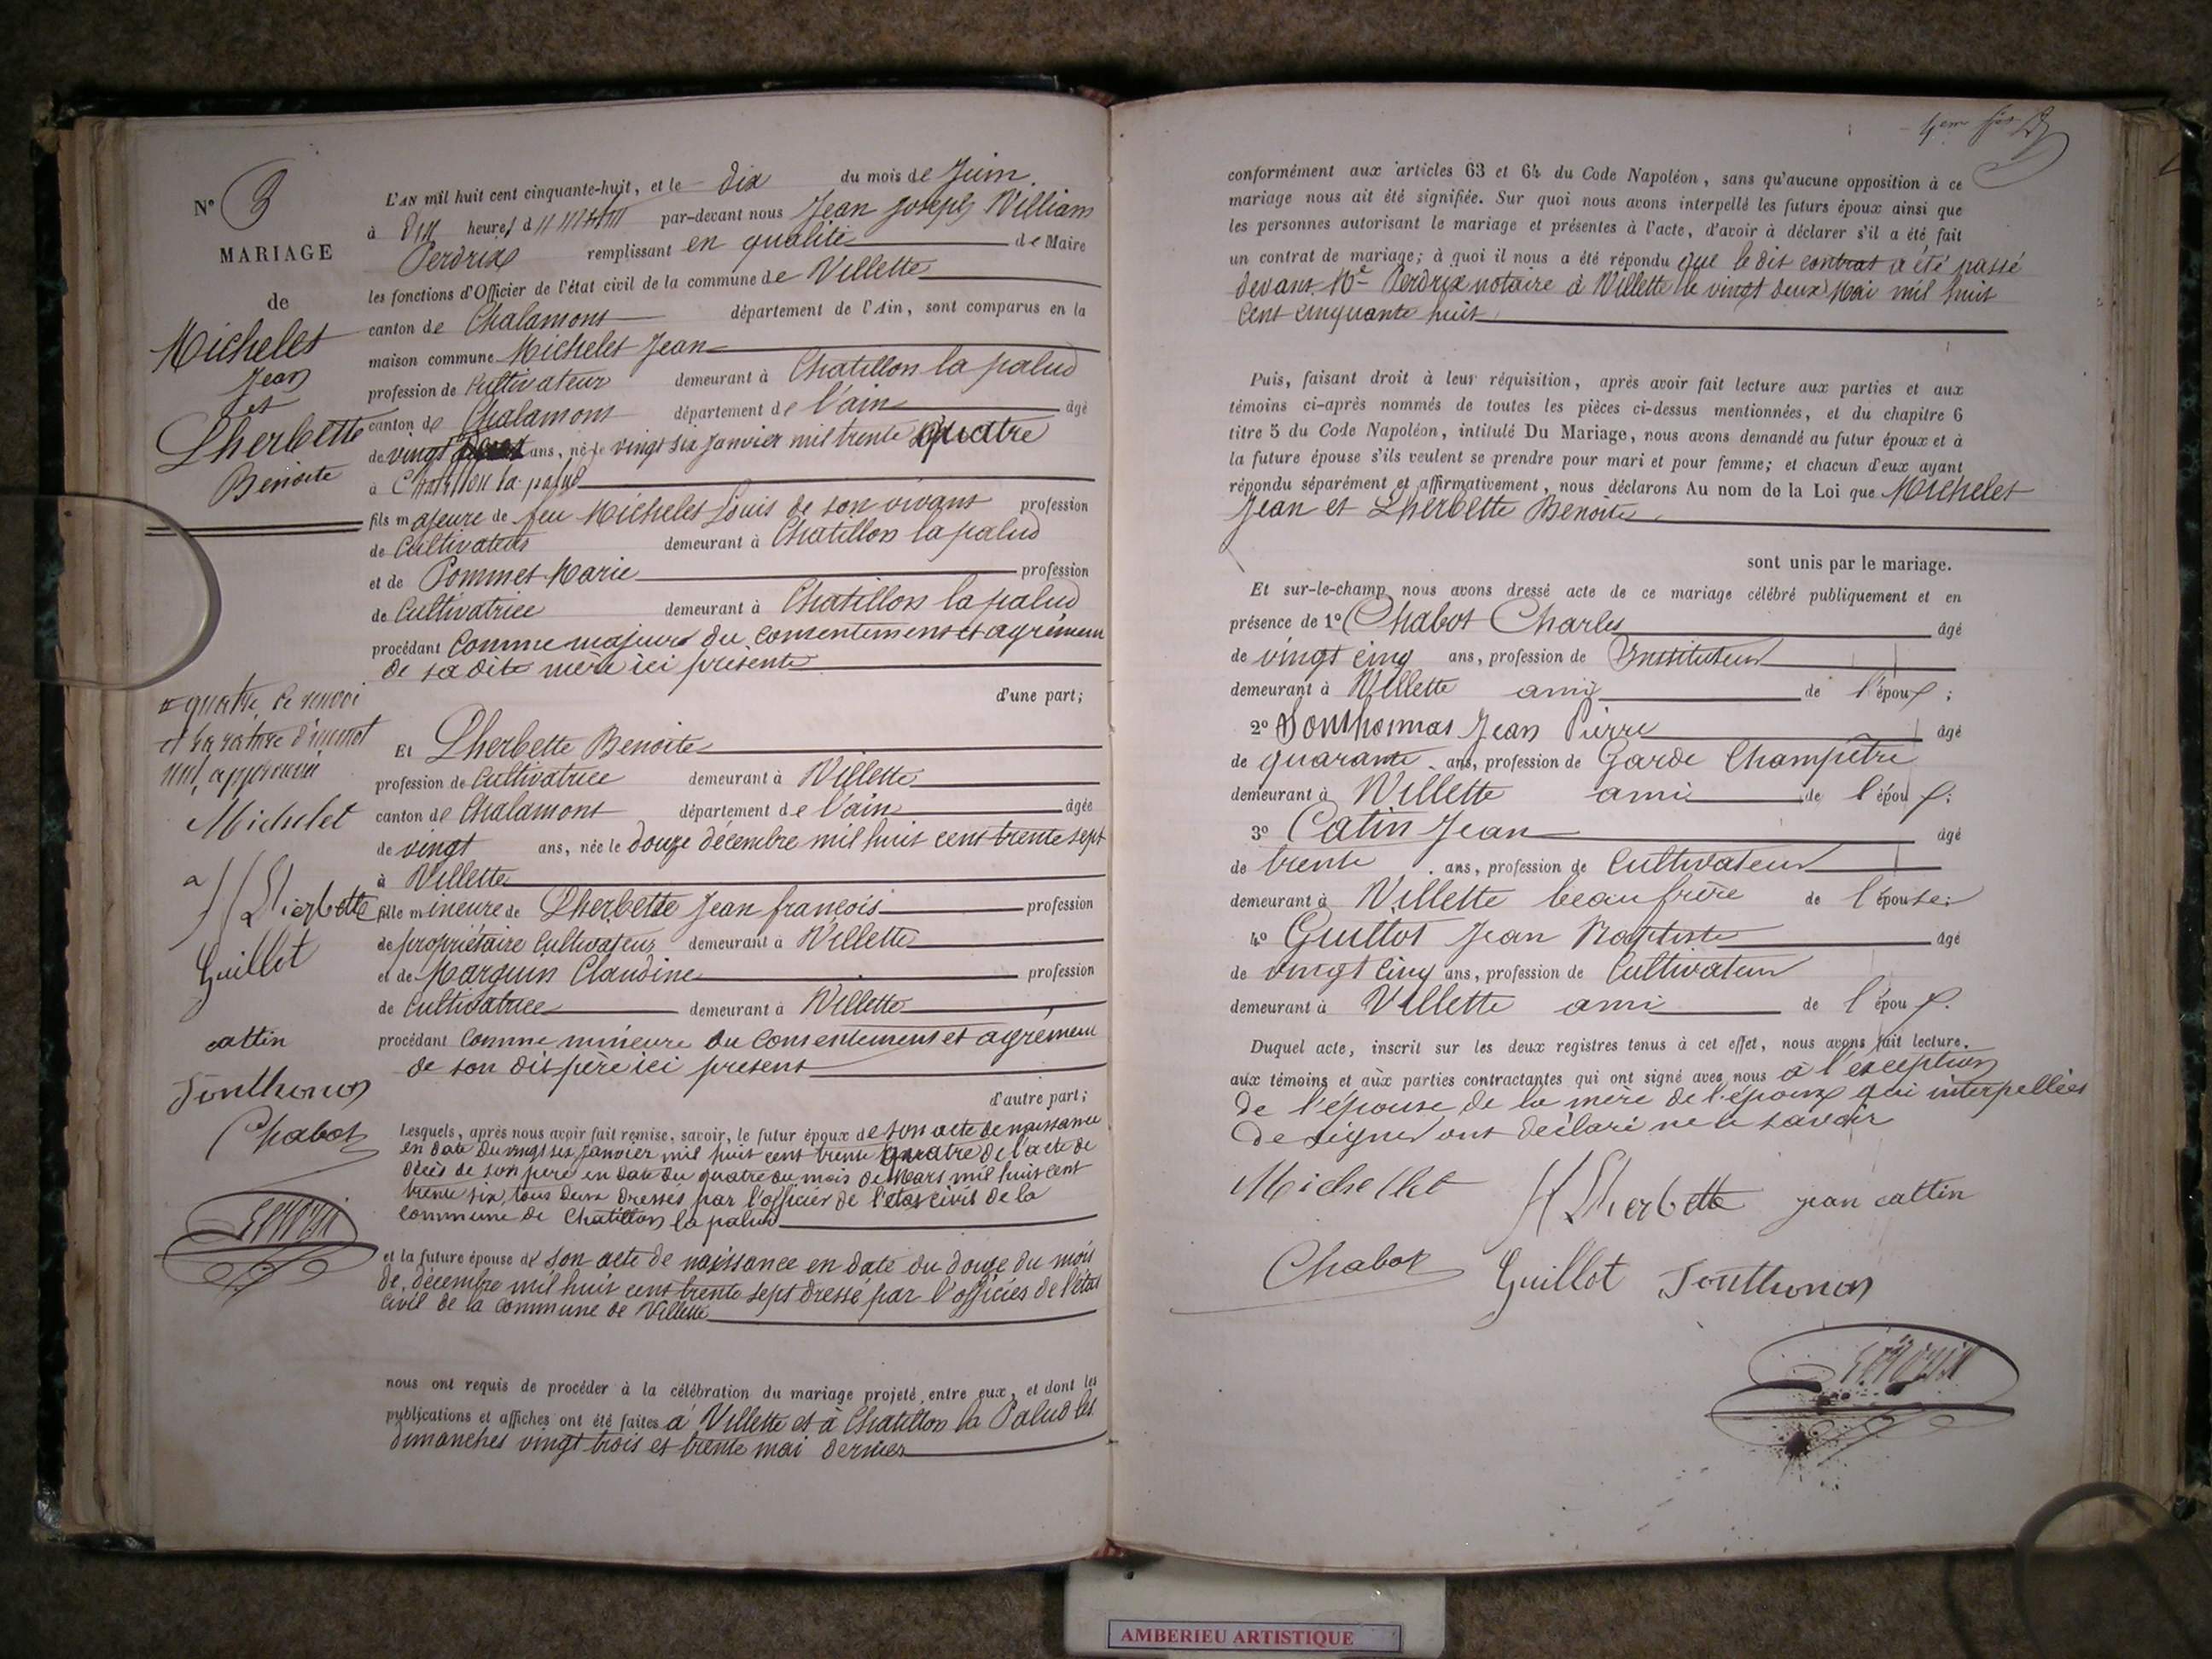 N° 3
MARIAGE
de
Michelet
Jean
et
Lherbette
Benoite
quatre, ce renvoi
et la rature d'un mot
nul, approuvés
Michelet
Lherbette
Guillot
cattin
Tonthonon
Chabot
L'AN mil huit cent cinquante-huit, et le dix du mois de Juin
à dix heures du matin par-devant nous Jean Joseph William
Perdrix remplissant en qualité de Maire
les fonctions d'Officier de l'état civil de la commune de Villette
canton de Chalamont département de l'Ain, sont comparus en la
maison commune Michelet Jean
profession de Cultivateur demeurant à Chatillon la palud
canton de Chalamont département de l'ain âgé
de vingt ans, né le vingt six Janvier mil trente quatre
à Chatillon la palud
fils majeure de feu Michelet Louis de son vivant profession
de Cultivateur demeurant à Chatillon la palud
et de Pommet Marie profession
de Cultivatrice demeurant à Chatillon la palud
procédant Comme majeur du consentement et agrément
de sa dite mère ici présente
d'une part;
Et Lherbette Benoite
profession de Cultivatrice demeurant à Villette
canton de Chalamont département de l'ain âgée
de vingt ans, née le douze décembre mil huit cent trente sept
à Villette
fille mineure de Lherbette Jean françois profession
de propriétaire Cultivateur demeurant à Villette
et de Marguin Claudine profession
de Cultivatrice demeurant à Villette
procédant Comme mineure du Consentement et agrément
de son dit père ici présent
d'autre part;
Lesquels, après nous avoir fait remise, savoir, le futur époux de son acte de naissance
en date du vingt six Janvier mil huit cent trente quatre de l'acte de
décès de son père en date du quatre du mois de Mars mil huit cent
trente six, tous deux dressés par l'officier de l'état civil de la
commune de Chatillon la palud
et la future épouse de son acte de naissance en date du douze du mois
de décembre mil huit cent trente sept dressé par l'officier de l'état
civil de la commune de Villette
nous ont requis de procéder à la célébration du mariage projeté entre eux, et dont les
publications et affiches ont été faites à Villette et à Chatillon la Palud les
dimanches vingt trois et trente mai dernier
conformément aux articles 63 et 64 du Code Napoléon, sans qu'aucune opposition à ce
mariage nous ait été signifiée. Sur quoi nous avons interpellé les futurs époux ainsi que
les personnes autorisant le mariage et présentes à l'acte, d'avoir à déclarer s'il a été fait
un contrat de mariage; à quoi il nous a été répondu que le dit contrat a été passé
devant Me Perdrix notaire à Villette le vingt deux Mai mil huit
cent cinquante huit
Puis, faisant droit à leur réquisition, après avoir fait lecture aux parties et aux
témoins ci-après nommés de toutes les pièces ci-dessus mentionnées, et du chapitre 6
titre 5 du Code Napoléon, intitulé Du Mariage, nous avons demandé au futur époux et à
la future épouse s'ils veulent se prendre pour mari et pour femme; et chacun d'eux ayant
répondu séparément et affirmativement, nous déclarons Au nom de la Loi que Michelet
Jean et Lherbette Benoite
sont unis par le mariage.
Et sur-le-champ nous avons dressé acte de ce mariage célébré publiquement et en
présence de 1° Chabot Charles âgé
de vingt cinq ans, profession de Instituteur
demeurant à Villette ami de l'époux;
2° Jean Pierre âgé
de quarante ans, profession de Garde Champêtre
demeurant à Villette ami de l'époux;
3° Catin Jean âgé
de trente ans, profession de Cultivateur
demeurant à Villette beau frère de l'épouse;
4° Guillot Jean Baptiste âgé
de vingt cinq ans, profession de Cultivateur
demeurant à Villette ami de l'époux.
Duquel acte, inscrit sur les deux registres tenus à cet effet, nous avons fait lecture.
aux témoins et aux parties contractantes qui ont signé avec nous à l'exception
de l'épouse de la mère de l'époux qui interpellées
de signer ont déclaré ne le savoir
Michellet Lherbette jean cattin
Chabot Guillot Tonthonon
AMBERIEU ARTISTIQUE